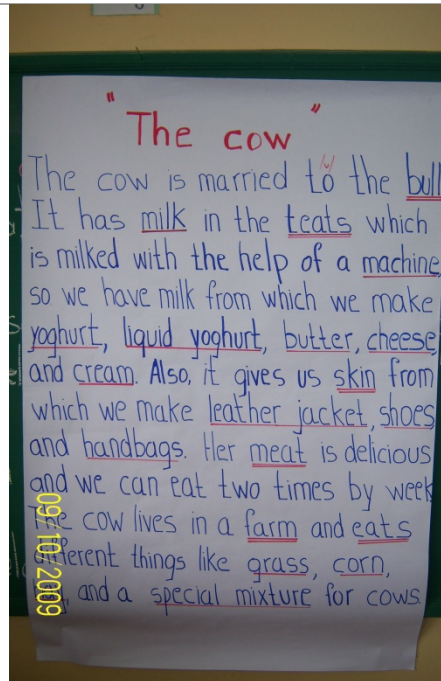 " The cow "
The cow is married to the bull
It has milk in the teats which
is milked with the help of a machine,
so we have milk from which we make
yoghurt, liquid yoghurt, butter, cheese
and cream. Also, it gives us skin from
which we make leather jacket, shoes
and handbags. Her meat is delicious
and we can eat two times by week
The cow lives in a farm and eats
different things like grass, corn,
, and a special mixture for cows.
09/10/2009